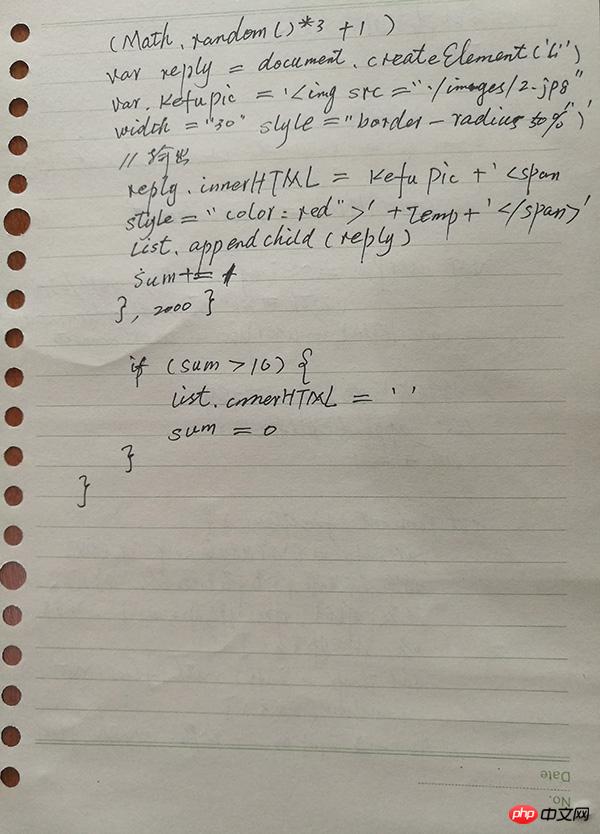 (Math.random()*3 +1 )
var reply = document.createElement('li')
var.kefupic = '<img src="./images/2.jpg"
width = "30" style="border-radius:50%">'
// 输出
reply.innerHTML = kefupic +'<span
style="color:red">' +temp+'</span>'
List.appendchild(reply)
sum+= 1
}, 2000 }
if (sum>10) {
list.innerHTML = ''
sum = 0
}
}
Date
No.
php 中文网